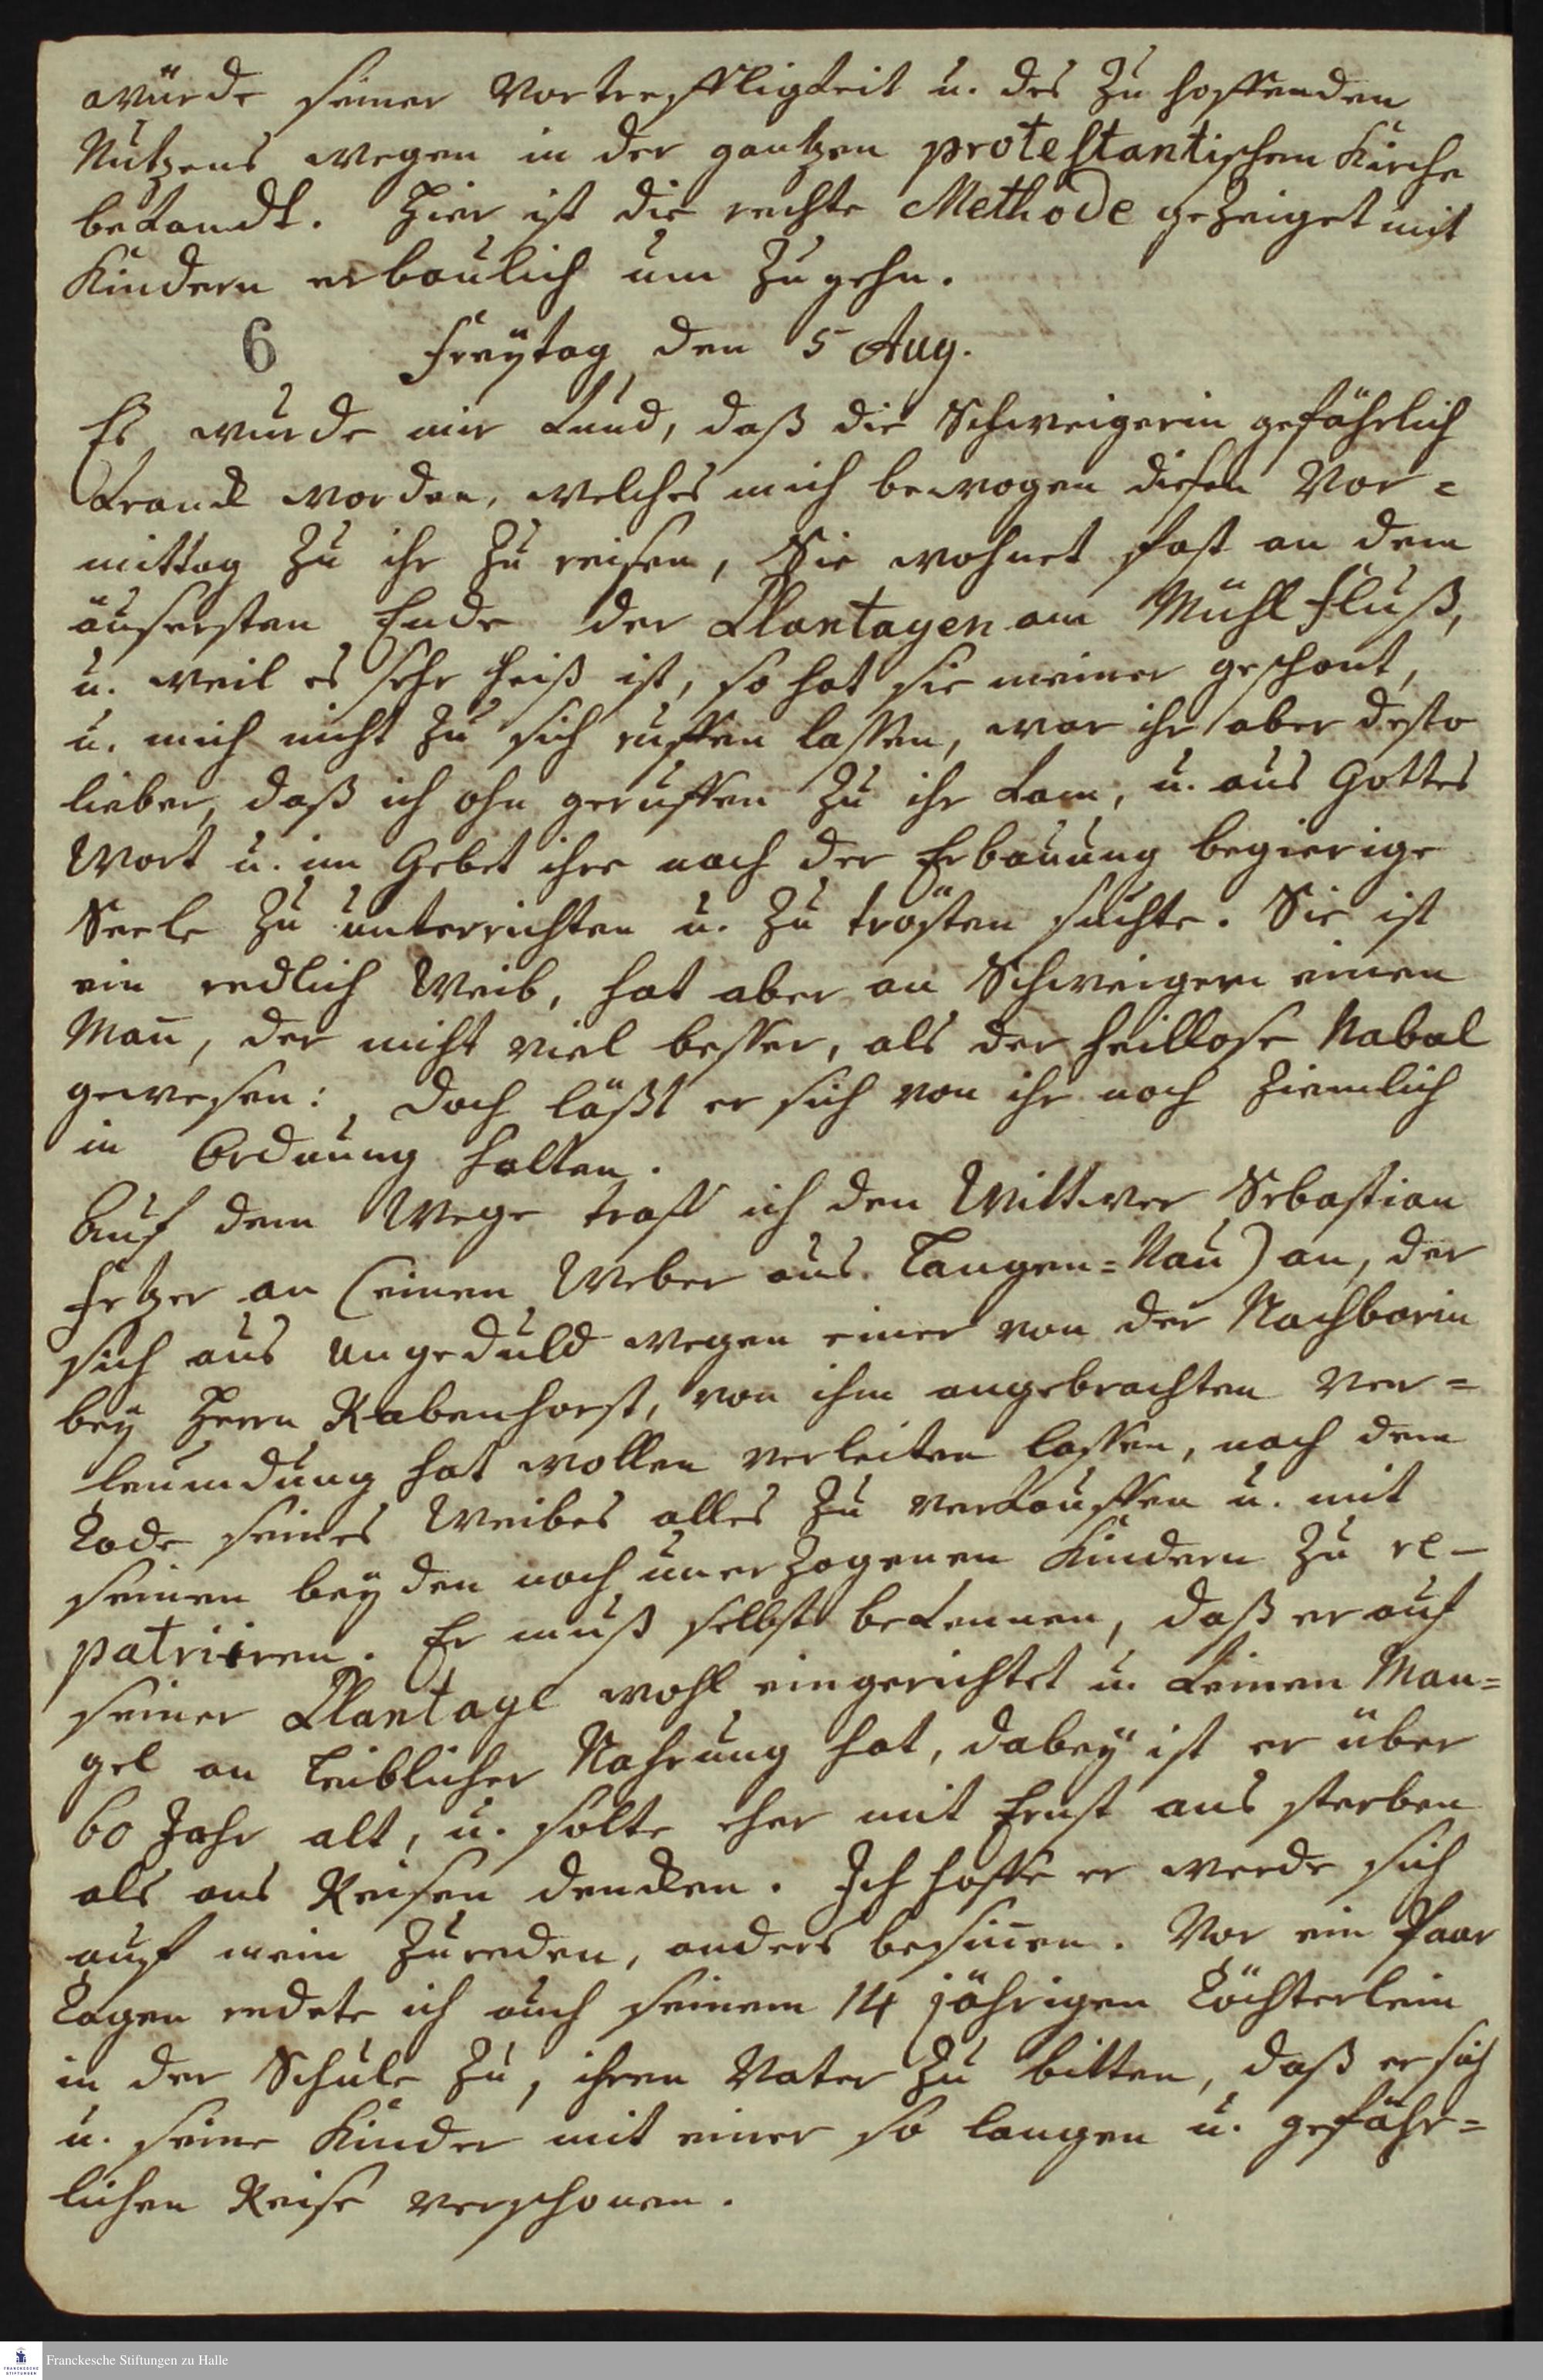 würde seiner Vortreffligkeit u. des zu hoffenden
Nutzens wegen in der gantzen protestantischen Kirche
bekandt. Hier ist die rechte Methode gezeiget mit
Kindern erbaulich um zu gehn.
6 Freÿtag den 5 Aug.
Es wurde mir kund, daß die Schweigerin gefährlich
kranck worden, welches mich bewogen diesen Vor=
mittag zu ihr zu reisen, Sie wohnet fast an dem
äusersten Ende der Plantagen am Mühlfluß,
u. weil es sehr heiß ist, so hat sie meiner geschont,
u. mich nicht zu sich ruffen lassen, war ihr aber desto
lieber, daß ich ohn geruffen zu ihr kam, u. aus Gottes
Wort u. im Gebet ihre nach der Erbauung begierige
Seele zu unterrichten u. zu trösten suchte. Sie ist
ein redlich Weib, hat aber an Schweigern einen
Mañ, der nicht viel besser, als der heillose Nabal
gewesen: doch läßt er sich von ihr noch ziemlich
in Ordnung halten.
Auf dem Wege traff ich den Wittwer Sebastian
Fetzer an (einen Weber aus Langen=Nau) an, der
sich aus Ungeduld wegen einer von der Nachbarin
bey Herrn Rabenhorst, von ihm angebrachten Ver=
leumdung hat wollen verleiten lassen, nach dem
Tode seines Weibes alles zu verkauffen u. mit
seinen beÿden noch unerzogenen Kindern zu re-
patriiren. Er muß selbst bekennen, daß er auf
seiner Plantage wohl eingerichtet u. keinen Man=
gel an leiblicher Nahrung hat, dabeÿ ist er über
60 Jahr alt, u. solte eher mit Ernst ans sterben
als ans Reisen dencken. Ich hoffe er werde sich
auf mein Zureden, anders besiñen. Vor ein Paar
Tagen redete ich auch seinem 14 jährigen Töchterlein
in der Schule zu, ihren Vater zu bitten, daß er sich
u. seine Kinder mit einer so langen u. gefähr=
lichen Reise verschonen.
Franckesche Stiftungen zu Halle